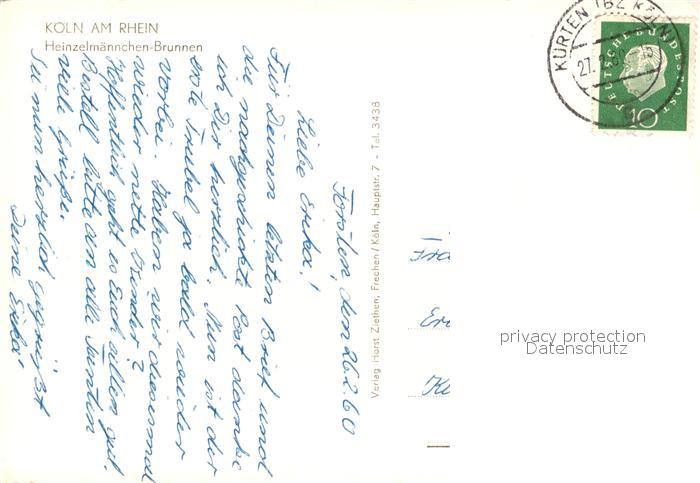 KÖLN AM RHEIN
Heinzelmännchen-Brunnen
KÜRTEN (BZ KÖLN)
DEUTSCHE BUNDESPOST
10
Forsten, den 26.2.60
Liebe Erika!
Für Deinen letzten Brief und
die nachgeschickte Post danke
ich Dir herzlich. Nun ist der
erste Trubel ja bald wieder
vorbei. Haben wir diesmal
wieder nette Kinder?
Hoffentlich geht es Euch allen gut.
Bestell bitte an alle Tanten
viele Grüße.
Sei nun herzlich gegrüßt
Deine Erika
Verlag Horst Ziethen, Frechen / Köln, Hauptstr. 7 - Tel. 3438
privacy protection
Datenschutz